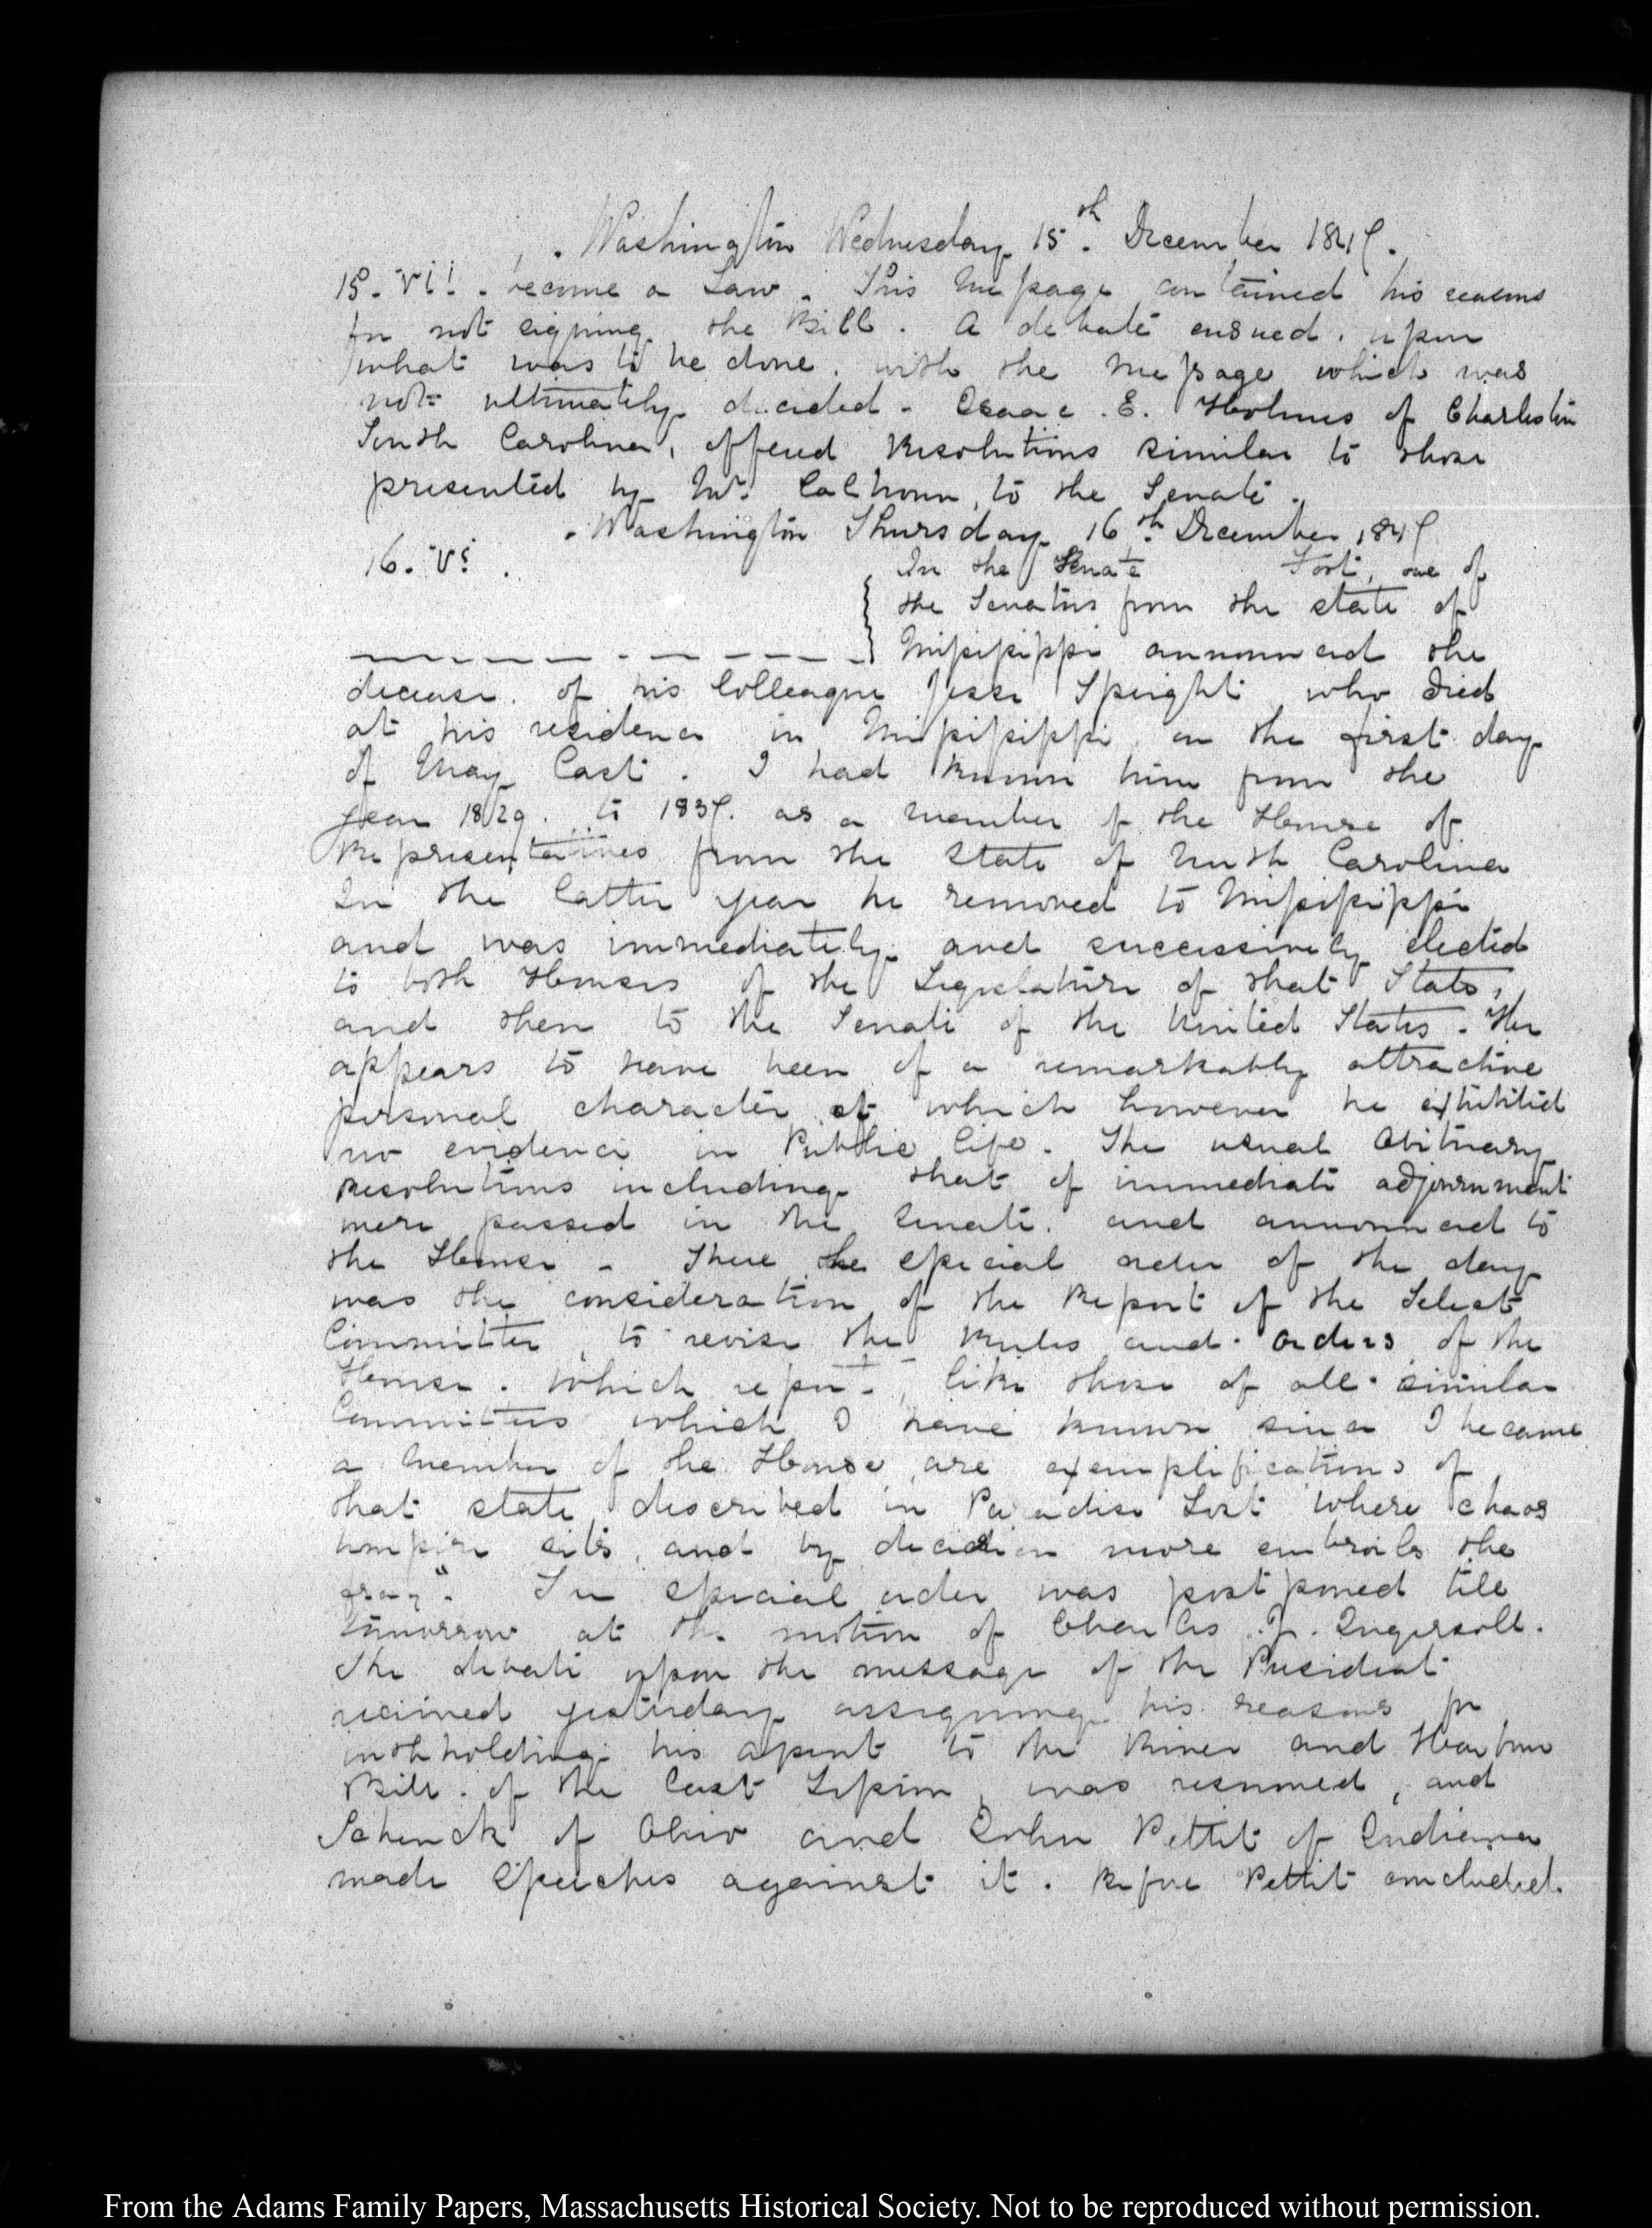 Washington Wednesday 15.th December 1847.
15. VII. become a Law. This Message contained his reasons
for not signing the Bill. A debate ensued, upon
what was to be done with the Message which was
not ultimately decided. Isaac E. Holmes of Charleston
South Carolina, offered Resolutions similar to those
presented by Mr. Calhoun, to the Senate.
Washington Thursday 16.th December 1847
16. V.
In the Senate Foot, one of
the Senators from the state of
Missisippi announced the
decease of his Colleague Jesse Speight who died
at his residence in Missisippi on the first day
of May last. I had known him from the
year 1829. to 1837. as a member of the House of
Representatives from the State of North Carolina
In the latter year he removed to Missisippi
and was immediately and successively elected
to both Houses of the Legislature of that State,
and then to the Senate of the United States. He
appears to have been of a remarkably attractive
personal character of which however he exhibited
no evidence in Public life. The usual Obituary
Resolutions including that of immediate adjournment
were passed in the Senate. and announced to
the House. There the special order of the day
was the consideration of the Report of the Select
Committee, to revise the Rules and orders of the
House. which report, like those of all similar
Committees which I have known since I became
a member of the House, are exemplifications of
that state described in Paradise Lost where "chaos
umpire sits, and by decision more embroils the
fray". The special order was postponed till
tomorrow at the motion of Charles J. Ingersoll.
The debate upon the message of the President
received yesterday assigning his reasons for
withholding his assent to the River and Harbour
Bill of the last Session, was resumed, and
Schenck of Ohio and John Pettit of Indiana
made Speeches against it. Before Pettit concluded.
From the Adams Family Papers, Massachusetts Historical Society. Not to be reproduced without permission.